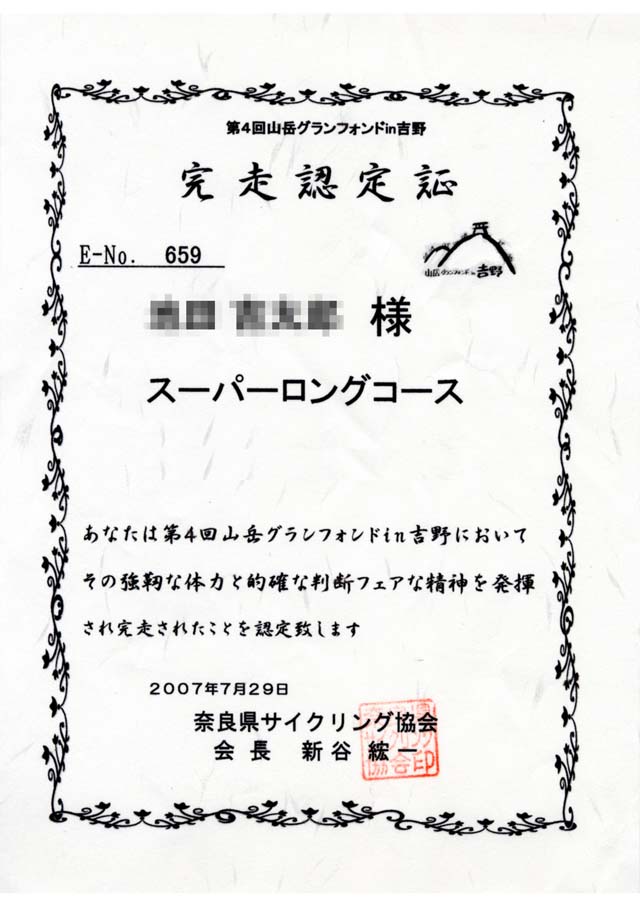 第4回山岳グランフォンドin吉野
完走認定証
E-No. 659
山岳グランフォンドin吉野
様
スーパーロングコース
あなたは第4回山岳グランフォンドin吉野において
その強靭な体力と的確な判断フェアな精神を発揮
され完走されたことを認定致します
2007年7月29日
奈良県サイクリング協会
会長 新谷 綋一